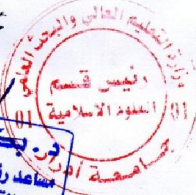 وزارة التعليم العالي والبحث العلمي
رئيس قسم
العلوم الاسلامية
01
01
جامعة أدرار
د.
مساعد